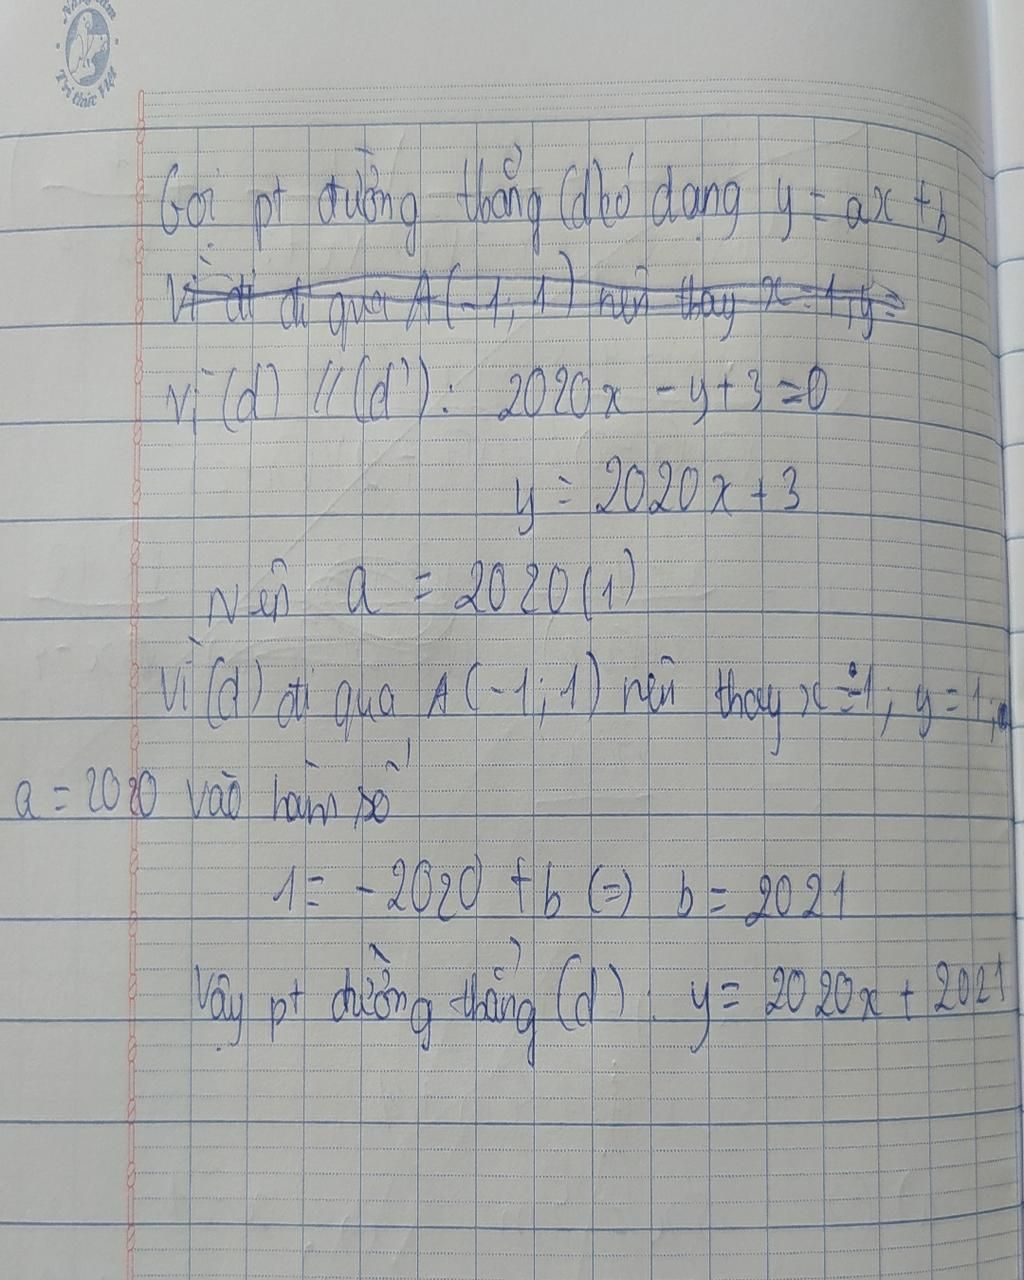 Nâng tầm
Tri thức Việt
Gọi pt đường thẳng (d) có dạng y = ax + b
Vì đt đi qua A(-1; 1) nên thay x = 1, y =
Vì (d) // (d'): 2020x - y + 3 = 0
y = 2020x + 3
Nên a = 2020 (1)
Vì (d) đi qua A(-1; 1) nên thay x = -1; y = 1;
a = 2020 vào hàm số
1 = - 2020 + b (=) b = 2021
Vậy pt đường thẳng (d): y = 2020x + 2021